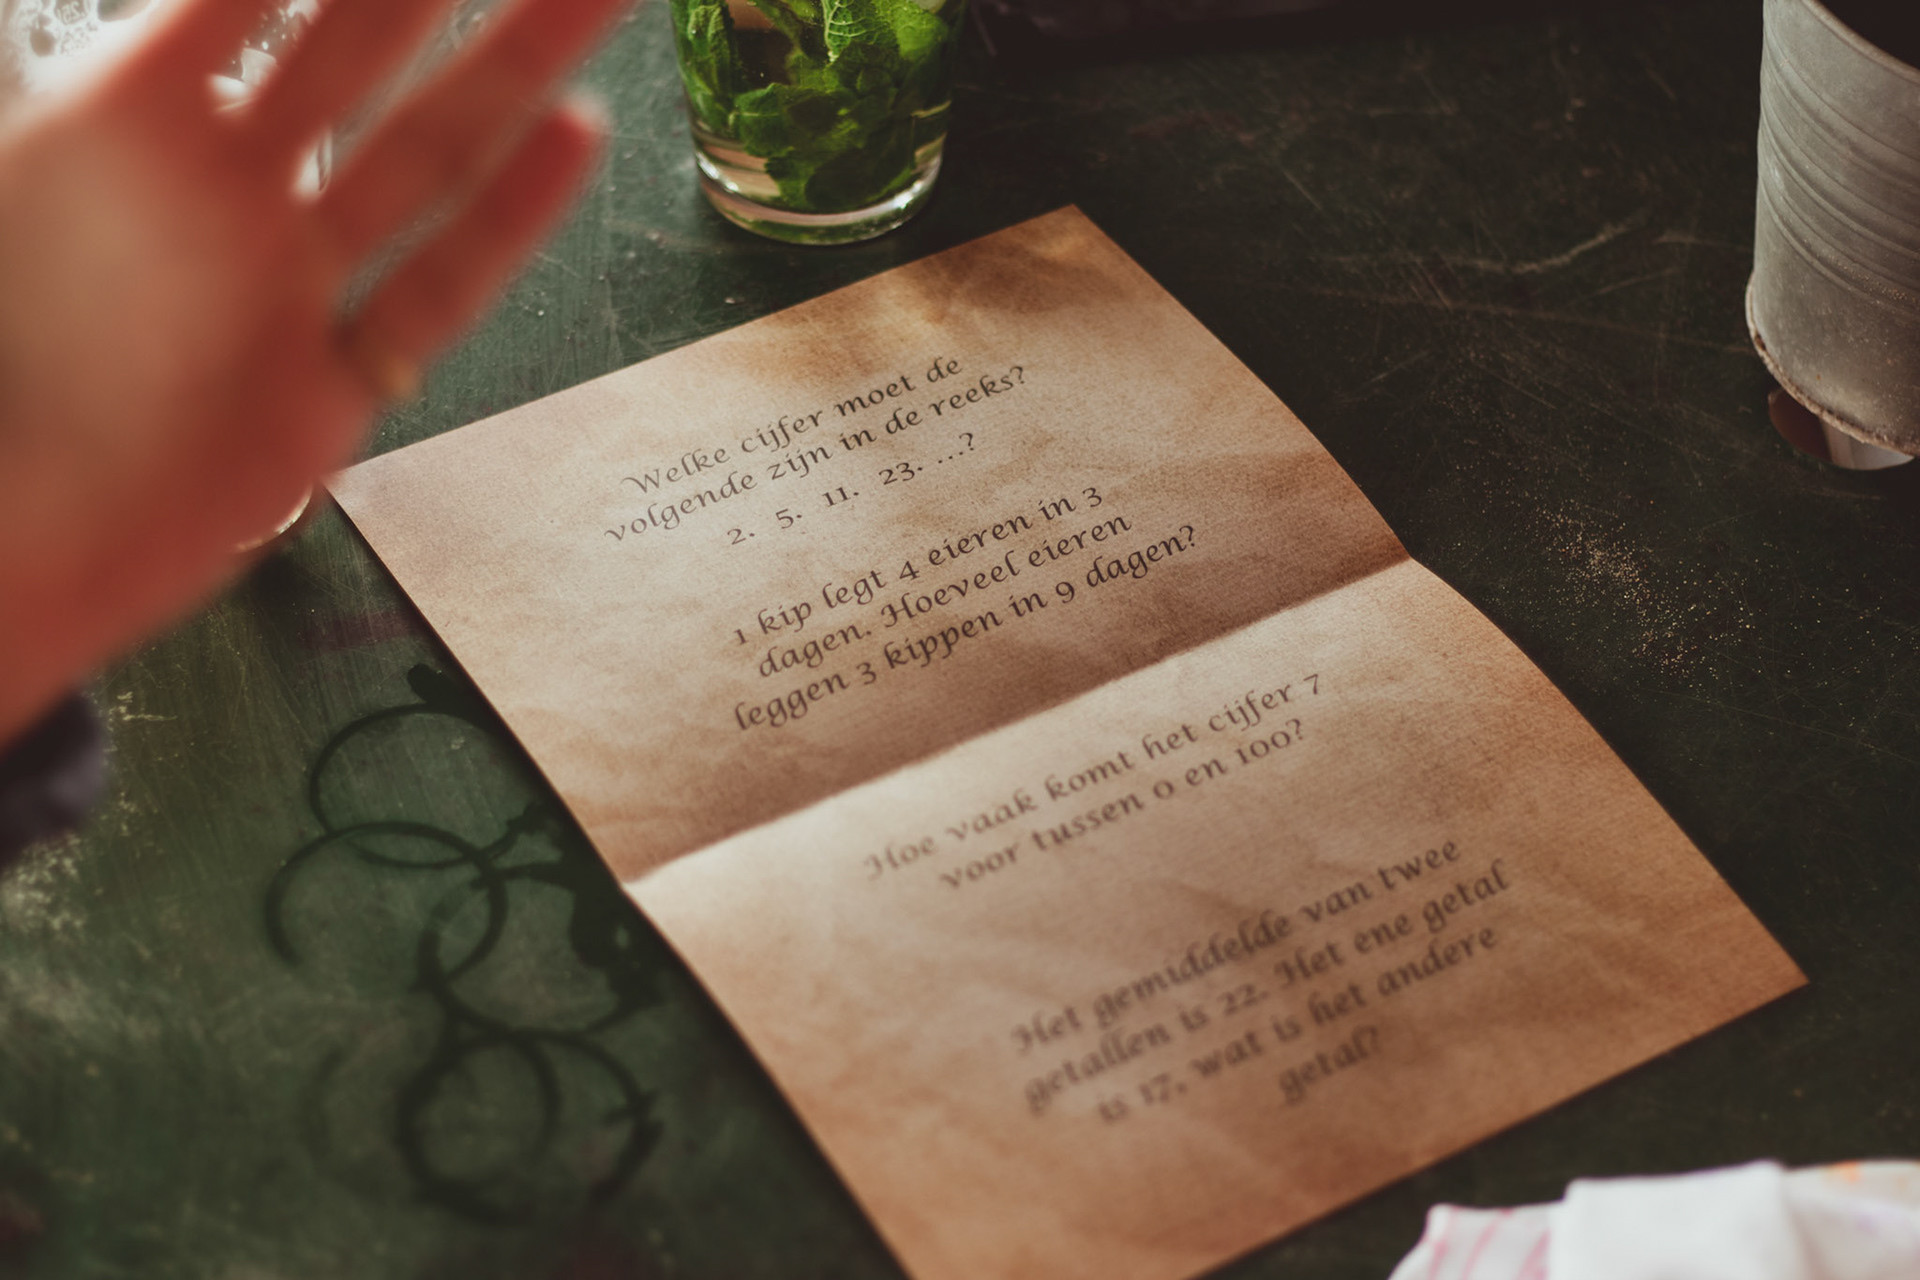 Welke cijfer moet de
volgende zijn in de reeks?
2. 5. 11. 23. ...?
1 kip legt 4 eieren in 3
dagen. Hoeveel eieren
leggen 3 kippen in 9 dagen?
Hoe vaak komt het cijfer 7
voor tussen 0 en 100?
Het gemiddelde van twee
getallen is 22. Het ene getal
is 17, wat is het andere
getal?